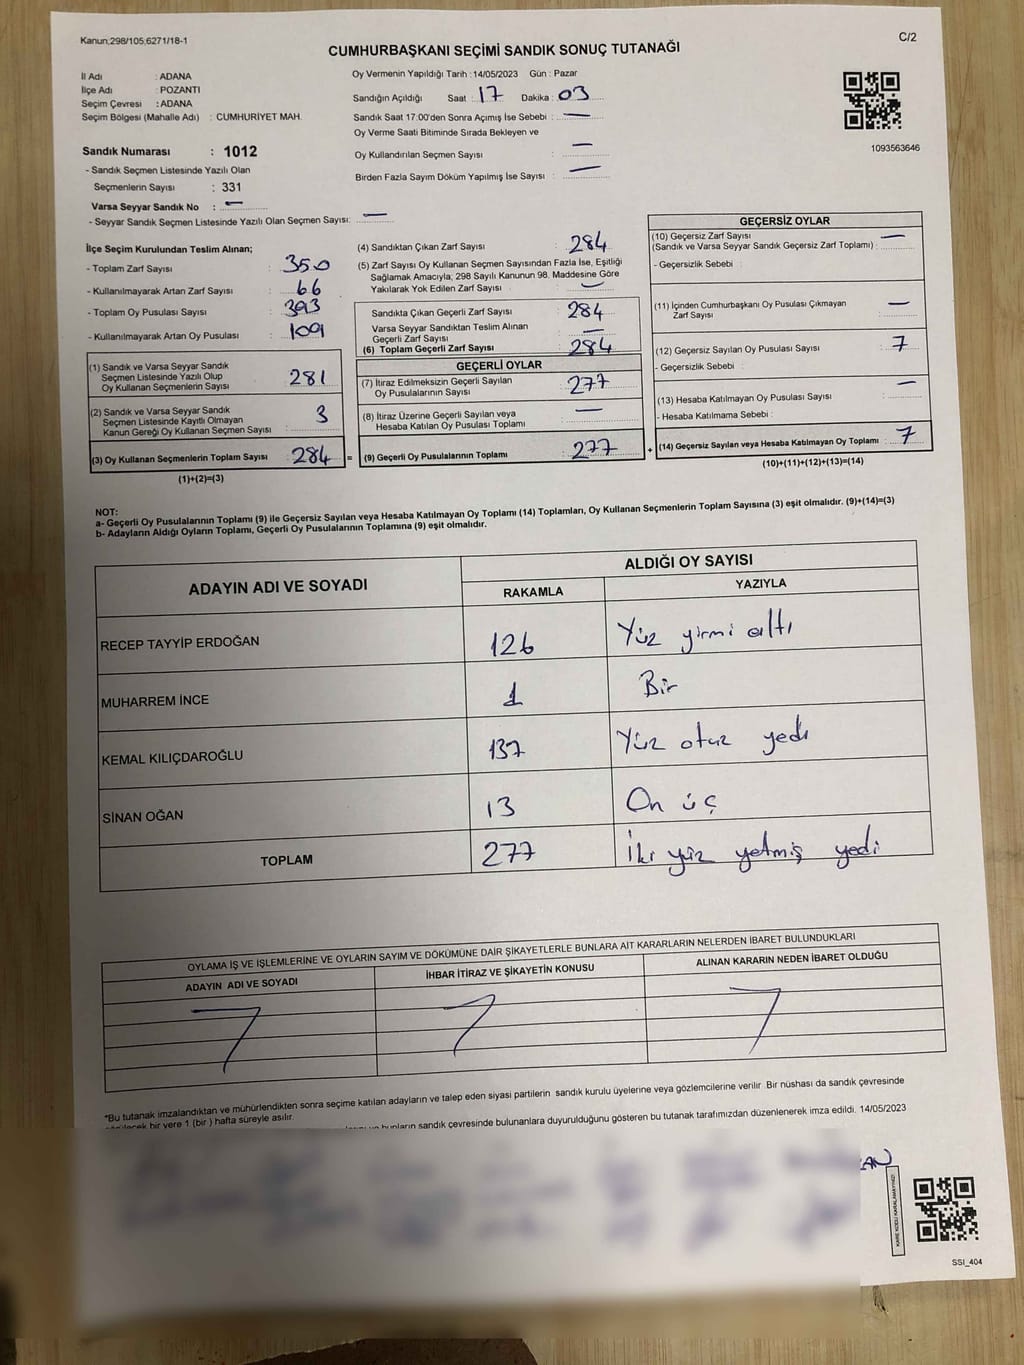 Kanun;298/105;6271/18-1
C/2
CUMHURBAŞKANI SEÇİMİ SANDIK SONUÇ TUTANAĞI
İl Adı : ADANA
İlçe Adı : POZANTI
Seçim Çevresi : ADANA
Seçim Bölgesi (Mahalle Adı) : CUMHURİYET MAH.
Oy Vermenin Yapıldığı Tarih : 14/05/2023 Gün : Pazar
Sandığın Açıldığı Saat : 17 Dakika : 03
Sandık Saat 17:00'den Sonra Açımış İse Sebebi : —
Oy Verme Saati Bitiminde Sırada Bekleyen ve
Oy Kullandırılan Seçmen Sayısı : —
Birden Fazla Sayım Döküm Yapılmış İse Sayısı : —
1093563646
Sandık Numarası : 1012
- Sandık Seçmen Listesinde Yazılı Olan
Seçmenlerin Sayısı : 331
Varsa Seyyar Sandık No : —
- Seyyar Sandık Seçmen Listesinde Yazılı Olan Seçmen Sayısı: —
İlçe Seçim Kurulundan Teslim Alınan;
- Toplam Zarf Sayısı : 350
- Kullanılmayarak Artan Zarf Sayısı : 66
- Toplam Oy Pusulası Sayısı : 393
- Kullanılmayarak Artan Oy Pusulası : 109
(1) Sandık ve Varsa Seyyar Sandık
Seçmen Listesinde Yazılı Olup
Oy Kullanan Seçmenlerin Sayısı : 281
(2) Sandık ve Varsa Seyyar Sandık
Seçmen Listesinde Kayıtlı Olmayan
Kanun Gereği Oy Kullanan Seçmen Sayısı : 3
(3) Oy Kullanan Seçmenlerin Toplam Sayısı : 284 =
(1)+(2)=(3)
(4) Sandıktan Çıkan Zarf Sayısı : 284
(5) Zarf Sayısı Oy Kullanan Seçmen Sayısından Fazla İse, Eşitliği
Sağlamak Amacıyla; 298 Sayılı Kanunun 98. Maddesine Göre
Yakılarak Yok Edilen Zarf Sayısı : —
Sandıkta Çıkan Geçerli Zarf Sayısı : 284
Varsa Seyyar Sandıktan Teslim Alınan
Geçerli Zarf Sayısı : —
(6) Toplam Geçerli Zarf Sayısı : 284
GEÇERLİ OYLAR
(7) İtiraz Edilmeksizin Geçerli Sayılan
Oy Pusulalarının Sayısı : 277
(8) İtiraz Üzerine Geçerli Sayılan veya
Hesaba Katılan Oy Pusulası Toplamı : —
(9) Geçerli Oy Pusulalarının Toplamı : 277 +
GEÇERSİZ OYLAR
(10) Geçersiz Zarf Sayısı
(Sandık ve Varsa Seyyar Sandık Geçersiz Zarf Toplamı) : —
- Geçersizlik Sebebi :
(11) İçinden Cumhurbaşkanı Oy Pusulası Çıkmayan
Zarf Sayısı : —
(12) Geçersiz Sayılan Oy Pusulası Sayısı : 7
- Geçersizlik Sebebi :
(13) Hesaba Katılmayan Oy Pusulası Sayısı : —
- Hesaba Katılmama Sebebi :
(14) Geçersiz Sayılan veya Hesaba Katılmayan Oy Toplamı : 7
(10)+(11)+(12)+(13)=(14)
NOT:
a- Geçerli Oy Pusulalarının Toplamı (9) ile Geçersiz Sayılan veya Hesaba Katılmayan Oy Toplamı (14) Toplamları, Oy Kullanan Seçmenlerin Toplam Sayısına (3) eşit olmalıdır. (9)+(14)=(3)
b- Adayların Aldığı Oyların Toplamı, Geçerli Oy Pusulalarının Toplamına (9) eşit olmalıdır.
ADAYIN ADI VE SOYADI
ALDIĞI OY SAYISI
RAKAMLA YAZIYLA
RECEP TAYYİP ERDOĞAN 126 Yüz yirmi altı
MUHARREM İNCE 1 Bir
KEMAL KILIÇDAROĞLU 137 Yüz otuz yedi
SİNAN OĞAN 13 On üç
TOPLAM 277 İki yüz yetmiş yedi
OYLAMA İŞ VE İŞLEMLERİNE VE OYLARIN SAYIM VE DÖKÜMÜNE DAİR ŞİKAYETLERLE BUNLARA AİT KARARLARIN NELERDEN İBARET BULUNDUKLARI
ADAYIN ADI VE SOYADI İHBAR İTİRAZ VE ŞİKAYETİN KONUSU ALINAN KARARIN NEDEN İBARET OLDUĞU
*Bu tutanak imzalandıktan ve mühürlendikten sonra seçime katılan adayların ve talep eden siyasi partilerin sandık kurulu üyelerine veya gözlemcilerine verilir. Bir nüshası da sandık çevresinde
bir yere 1 (bir ) hafta süreyle asılır.
bunların sandık çevresinde bulunanlara duyurulduğunu gösteren bu tutanak tarafımızdan düzenlenerek imza edildi. 14/05/2023
KARE KODU KARALAMAYINIZ!
SSI_404